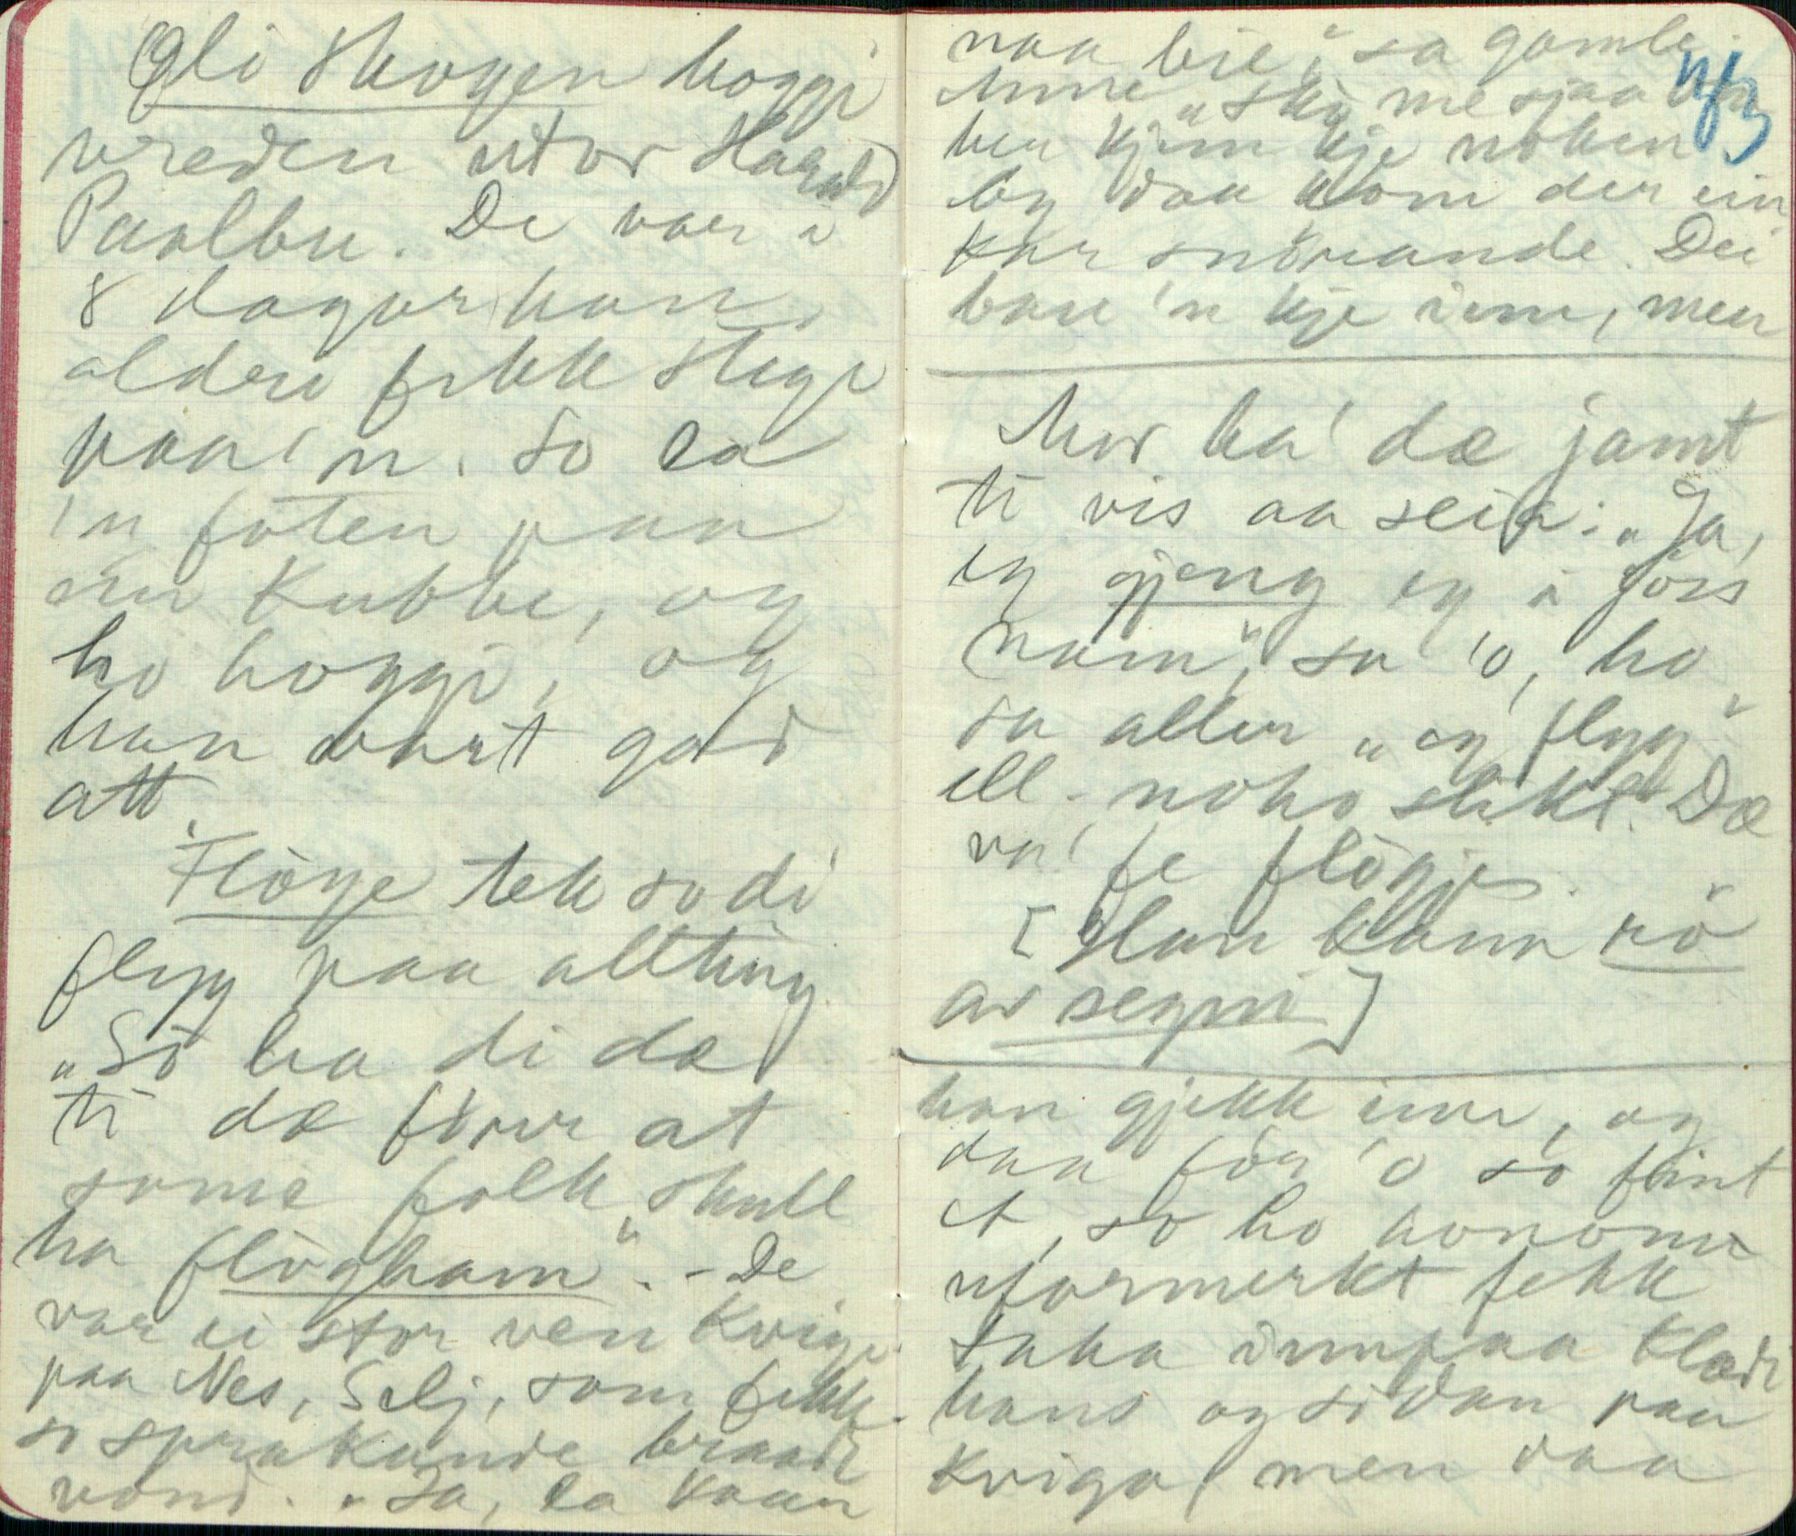 Oli Skogen hoggi
vreden utor Harald
Paalbu. De var i
8 dagar han
aldri fekk stige
paa'n. So la
'n foten paa
ein kubbe, og
ho hoggi, og
han vart god
att.
Flöge tek so di
flyg paa allting
"So ha di dæ
ti dæ förur at
some folk skull
ha flögham". - De
var ei stor ven kvige
paa Nes, Selj, som fekk
so sprakande braadt
vond. "Ja, la kaan
naa bie", sa gamle
Anne "skú me sjaa um
her kjem kje noken"
Og daa kom der ein
kar snöriande. Dei
bau 'n kje inn, men
Mor ha' dæ jamt
ti vis aa seia: "Ja,
eg gjeng eg i Jöss
namn", sa 'o, ho
sa aller "eg flyg"
ell. noko slikt. Dæ
va' fe flögje.
[Han kann rö
av segni]
han gjekk inn, og
daa fór 'o so feint
et, so ho honom
uformerkt fekk
taka innpaa klædi
hans og sidan paa
kviga, men daa